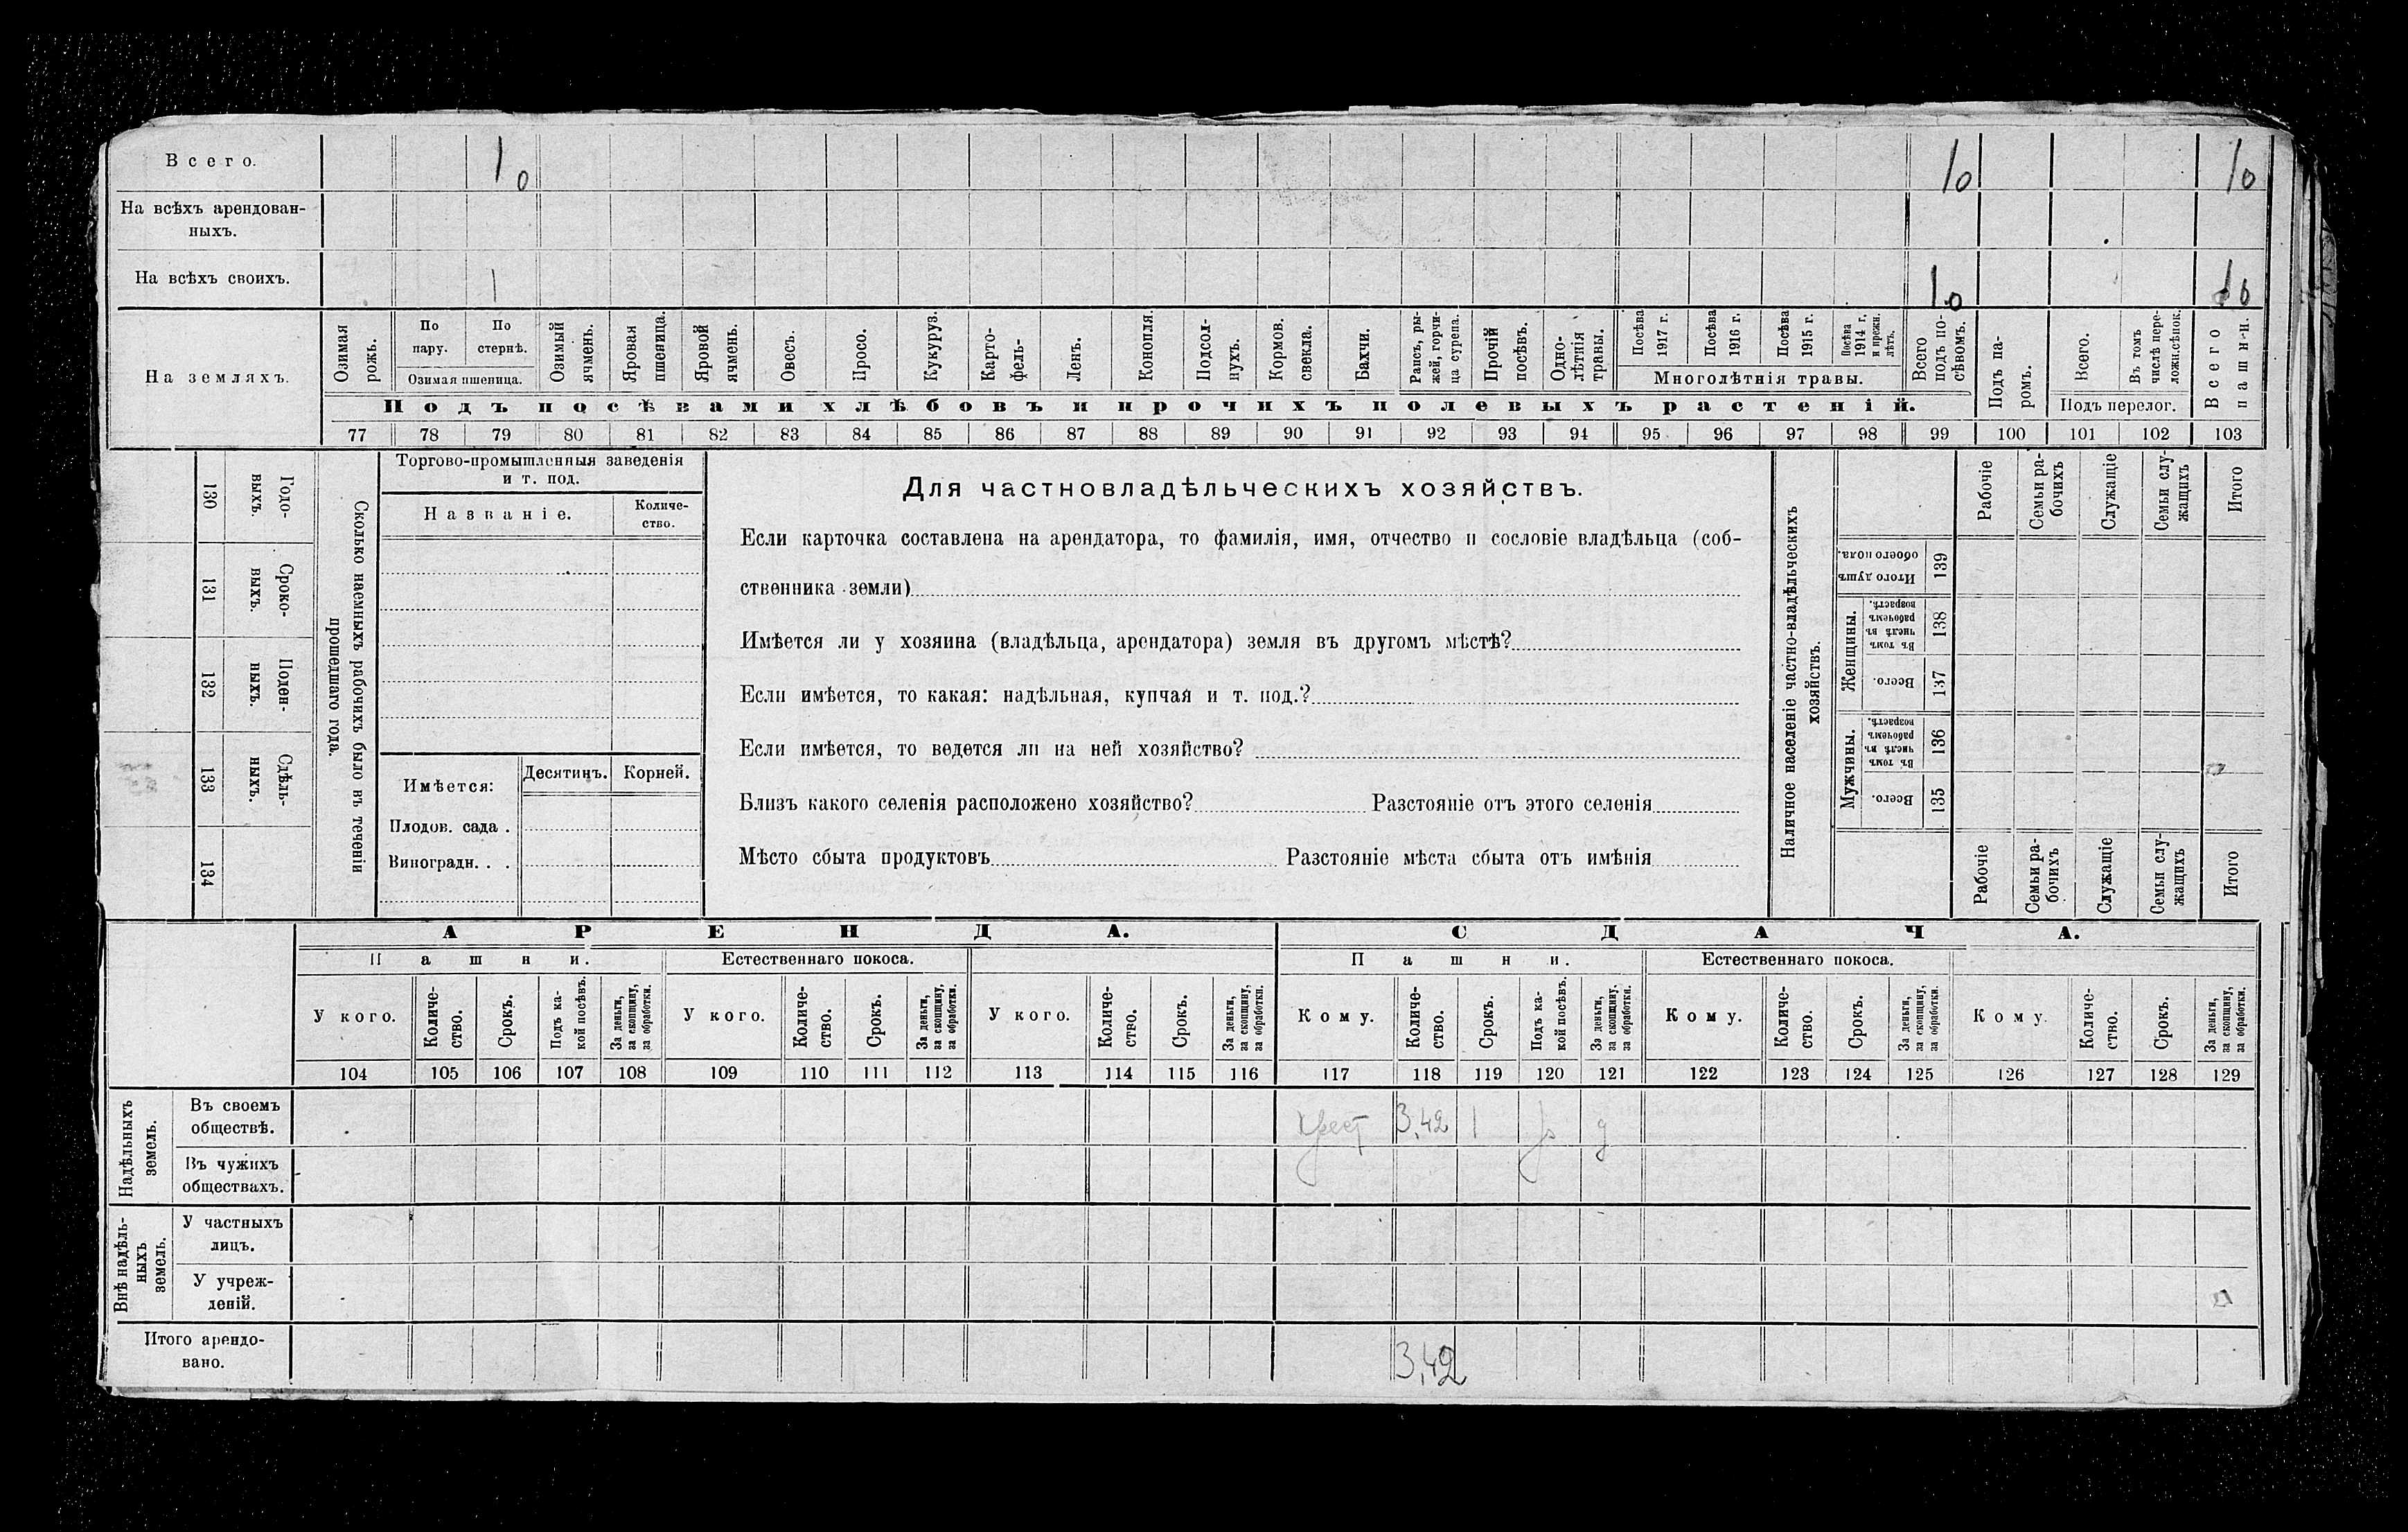 Всего. 10 10 10
На всѣхъ арендован-
ныхъ.
На всѣхъ своихъ. 1 10
На земляхъ.
Озимая рожь.
По пару.
По стернѣ.
Озимая пшеница.
Озимый ячмень.
Яровая пшеница.
Яровой ячмень.
Овесъ.
Просо.
Кукуруз.
Карто-
фель-
Ленъ.
Конопля.
Подсол-
нухъ.
Кормов.
свекла.
Бахчи.
Рапсъ, ры-
жей, горчи-
ца сурепа.
Прочій
посѣвъ.
Одно-
лѣтнія
травы.
Посѣва
1917 г.
Посѣва
1916 г.
Посѣва
1915 г.
Посѣва
1914 г.
и прежн.
лѣтъ.
Многолѣтнія травы.
Всего
подъ по-
сѣвомъ.
Подъ па-
ромъ.
Всего.
Въ томъ
числѣ пере-
ложн.сѣнок.
Подъ перелог.
Всего
пашни.
Подъ посѣвами хлѣбовъ и прочихъ полевыхъ растеній.
77 78 79 80 81 82 83 84 85 86 87 88 89 90 91 92 93 94 95 96 97 98 99 100 101 102 103
130 Годо-
выхъ.
131 Сроко-
выхъ.
132 Поден-
ныхъ.
133 Сдѣль-
ныхъ.
134
Сколько наемныхъ рабочихъ было въ теченіи
прошедшаго года.
Торгово-промышленныя заведенія
и т. под.
Названіе.
Количе-
ство.
Имѣется:
Десятинъ. Корней.
Плодов. сада .
Виноградн. . .
Для частновладѣльческихъ хозяйствъ.
Если карточка составлена на арендатора, то фамилія, имя, отчество и сословіе владѣльца (соб-
ственника земли)
Имѣется ли у хозяина (владѣльца, арендатора) земля въ другомъ мѣстѣ?
Если имѣется, то какая: надѣльная, купчая и т. под.?
Если имѣется, то ведется ли на ней хозяйство?
Близъ какого селенія расположено хозяйство? Разстояніе отъ этого селенія
Мѣсто сбыта продуктовъ Разстояніе мѣста сбыта отъ имѣнія
Наличное населеніе частно-владѣльческихъ
хозяйствъ.
Рабочіе
Семьи ра-
бочихъ
Служащіе
Семьи слу-
жащихъ
Итого
Итого душъ
обоего пола.
139
Женщины.
Въ томъ
числѣ въ
рабочемъ
возрастѣ.
138
Всего.
137
Мужчины.
Въ томъ
числѣ въ
рабочемъ
возрастѣ.
136
Всего.
135
Рабочіе
Семьи ра-
бочихъ
Служащіе
Семьи слу-
жащихъ
Итого
АРЕНДА. СДАЧА.
Пашни. Естественнаго покоса. Пашни. Естественнаго покоса.
У кого.
Количе-
ство.
Срокъ.
Подъ ка-
кой посѣвъ.
За деньги,
за скопщину,
за обработки.
У кого.
Количе-
ство.
Срокъ.
За деньги,
за скопщину,
за обработки.
У кого.
Количе-
ство.
Срокъ.
За деньги,
за скопщину,
за обработки.
Кому.
Количе-
ство.
Срокъ.
Подъ ка-
кой посѣвъ.
За деньги,
за скопщину,
за обработки.
Кому.
Количе-
ство.
Срокъ.
За деньги,
за скопщину,
за обработки.
Кому.
Количе-
ство.
Срокъ.
За деньги,
за скопщину,
за обработки.
104 105 106 107 108 109 110 111 112 113 114 115 116 117 118 119 120 121 122 123 124 125 126 127 128 129
Надѣльныхъ
земель.
Въ своемъ
обществѣ.
3,42 1 д
Въ чужихъ
обществахъ.
Внѣ надѣль-
ныхъ
земель.
У частныхъ
лицъ.
У учреж-
деній.
Итого арендо-
вано.
3,42